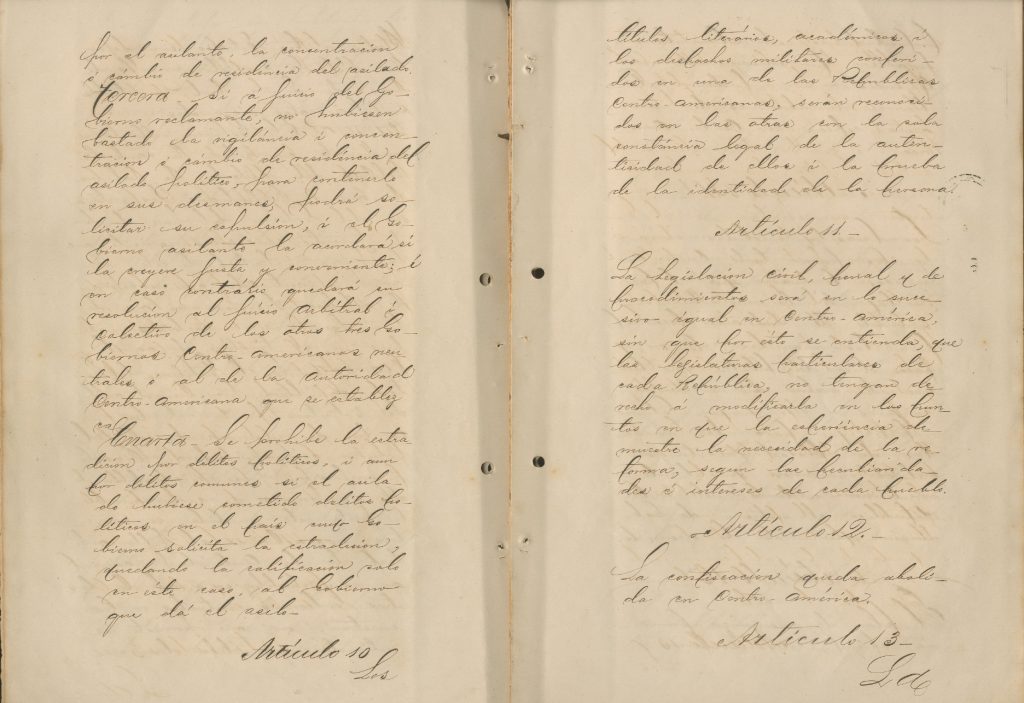 por el asilante la concentracion
ó cámbio de residéncia del asilado.
Tercera - Si á juicio del Go-
bierno reclamante, no hubiesen
bastado la vigiláncia i concen-
tracion ó cámbio de residéncia del
asilado político, para contenerlo
en sus desmanes, podrá so-
licitar su expulsion, i el Go-
bierno asilante la acordará si
la creyere justa y conveniente; i
en caso contrário quedará su
resolucion al juicio arbitral ó
colectivo de los otros tres Go-
biernos Centro-americanos neu-
trales ó al de la autoridad
Centro-Americana que se establez
ca
Cuarta - Se prohibe la estra
dicion por delitos políticos, i aun
por delitos comunes si el asila
do hubiese cometido delitos po-
líticos en el país cuyo Go-
bierno solicita la estradicion,
quedando la calificacion solo
en éste caso, al Gobierno
que dá el asilo-
Artículo 10
Los
títulos literários, académicos i
los despachos militares conferi-
dos en una de las Repúblicas
Centro-americanas, serán reconoci-
dos en las otras con la sola
constáncia legal de la auten-
ticidad de ellos i la prueba
de la identidad de la persona.
Artículo 11-
La legislacion civil, penal y de
procedimientos será en lo suce-
sivo igual en Centro-América,
sin que por ésto se entienda, que
las legislaturas particulares de
cada República, no tengan de
recho á modificarla en los pun
tos en que la esperiéncia de-
muestre la necesidad de la re-
forma, segun las peculiarida-
des é intereses de cada pueblo.
Artículo 12.-
La confiscacion queda aboli-
da en Centro-América.
Artículo 13-
La